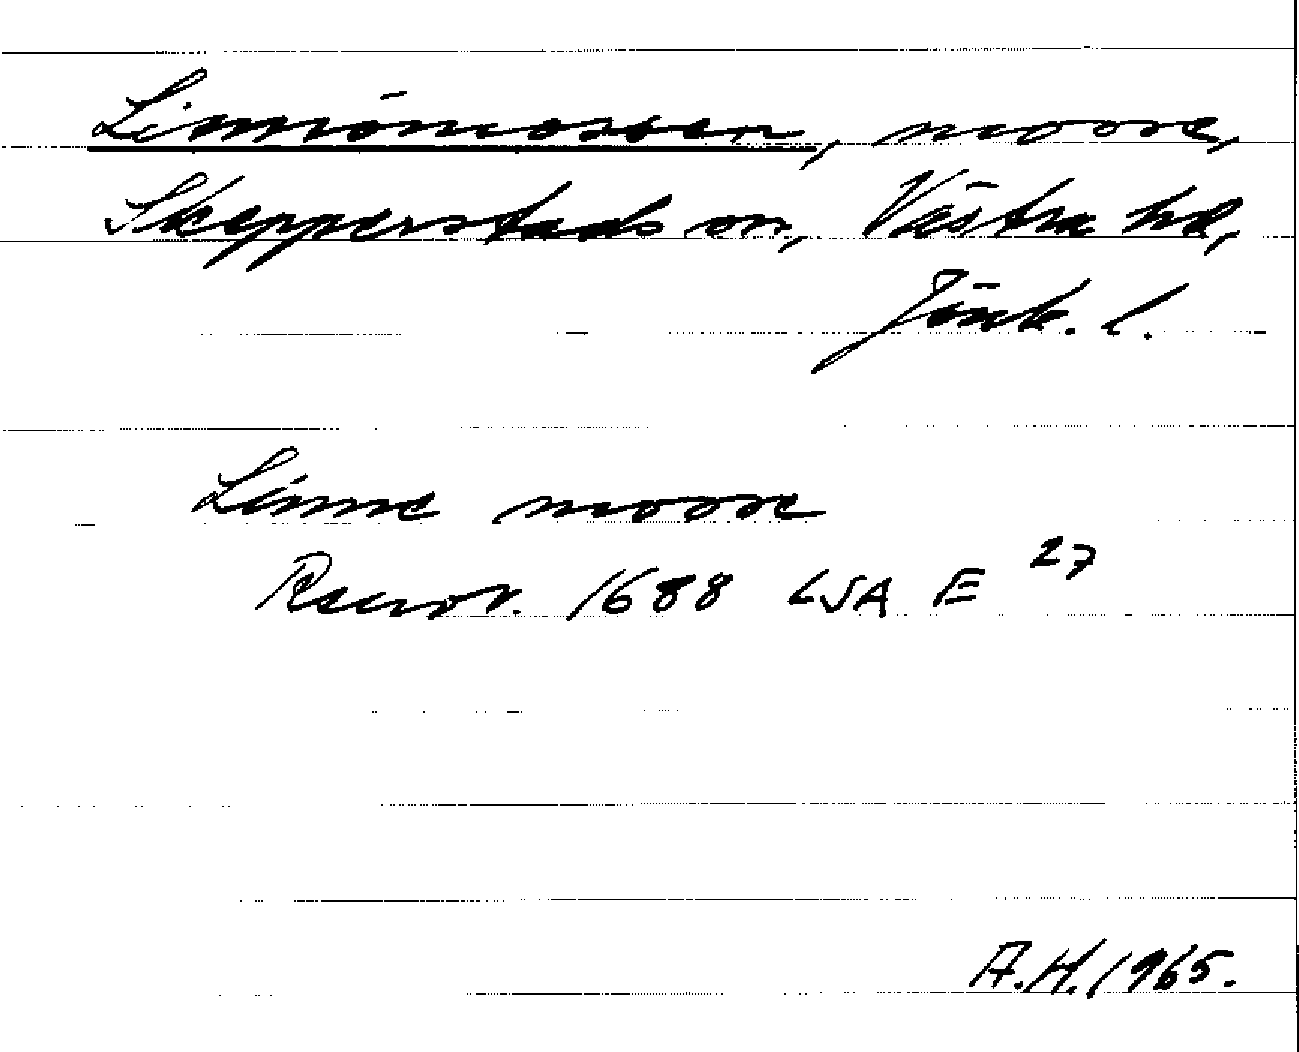 Linnömossen, mosse,
Skepperstads sn, Västra hd,
Jönk. l.
Linne mosse
1688 LSA E 27
A.H. 1965.